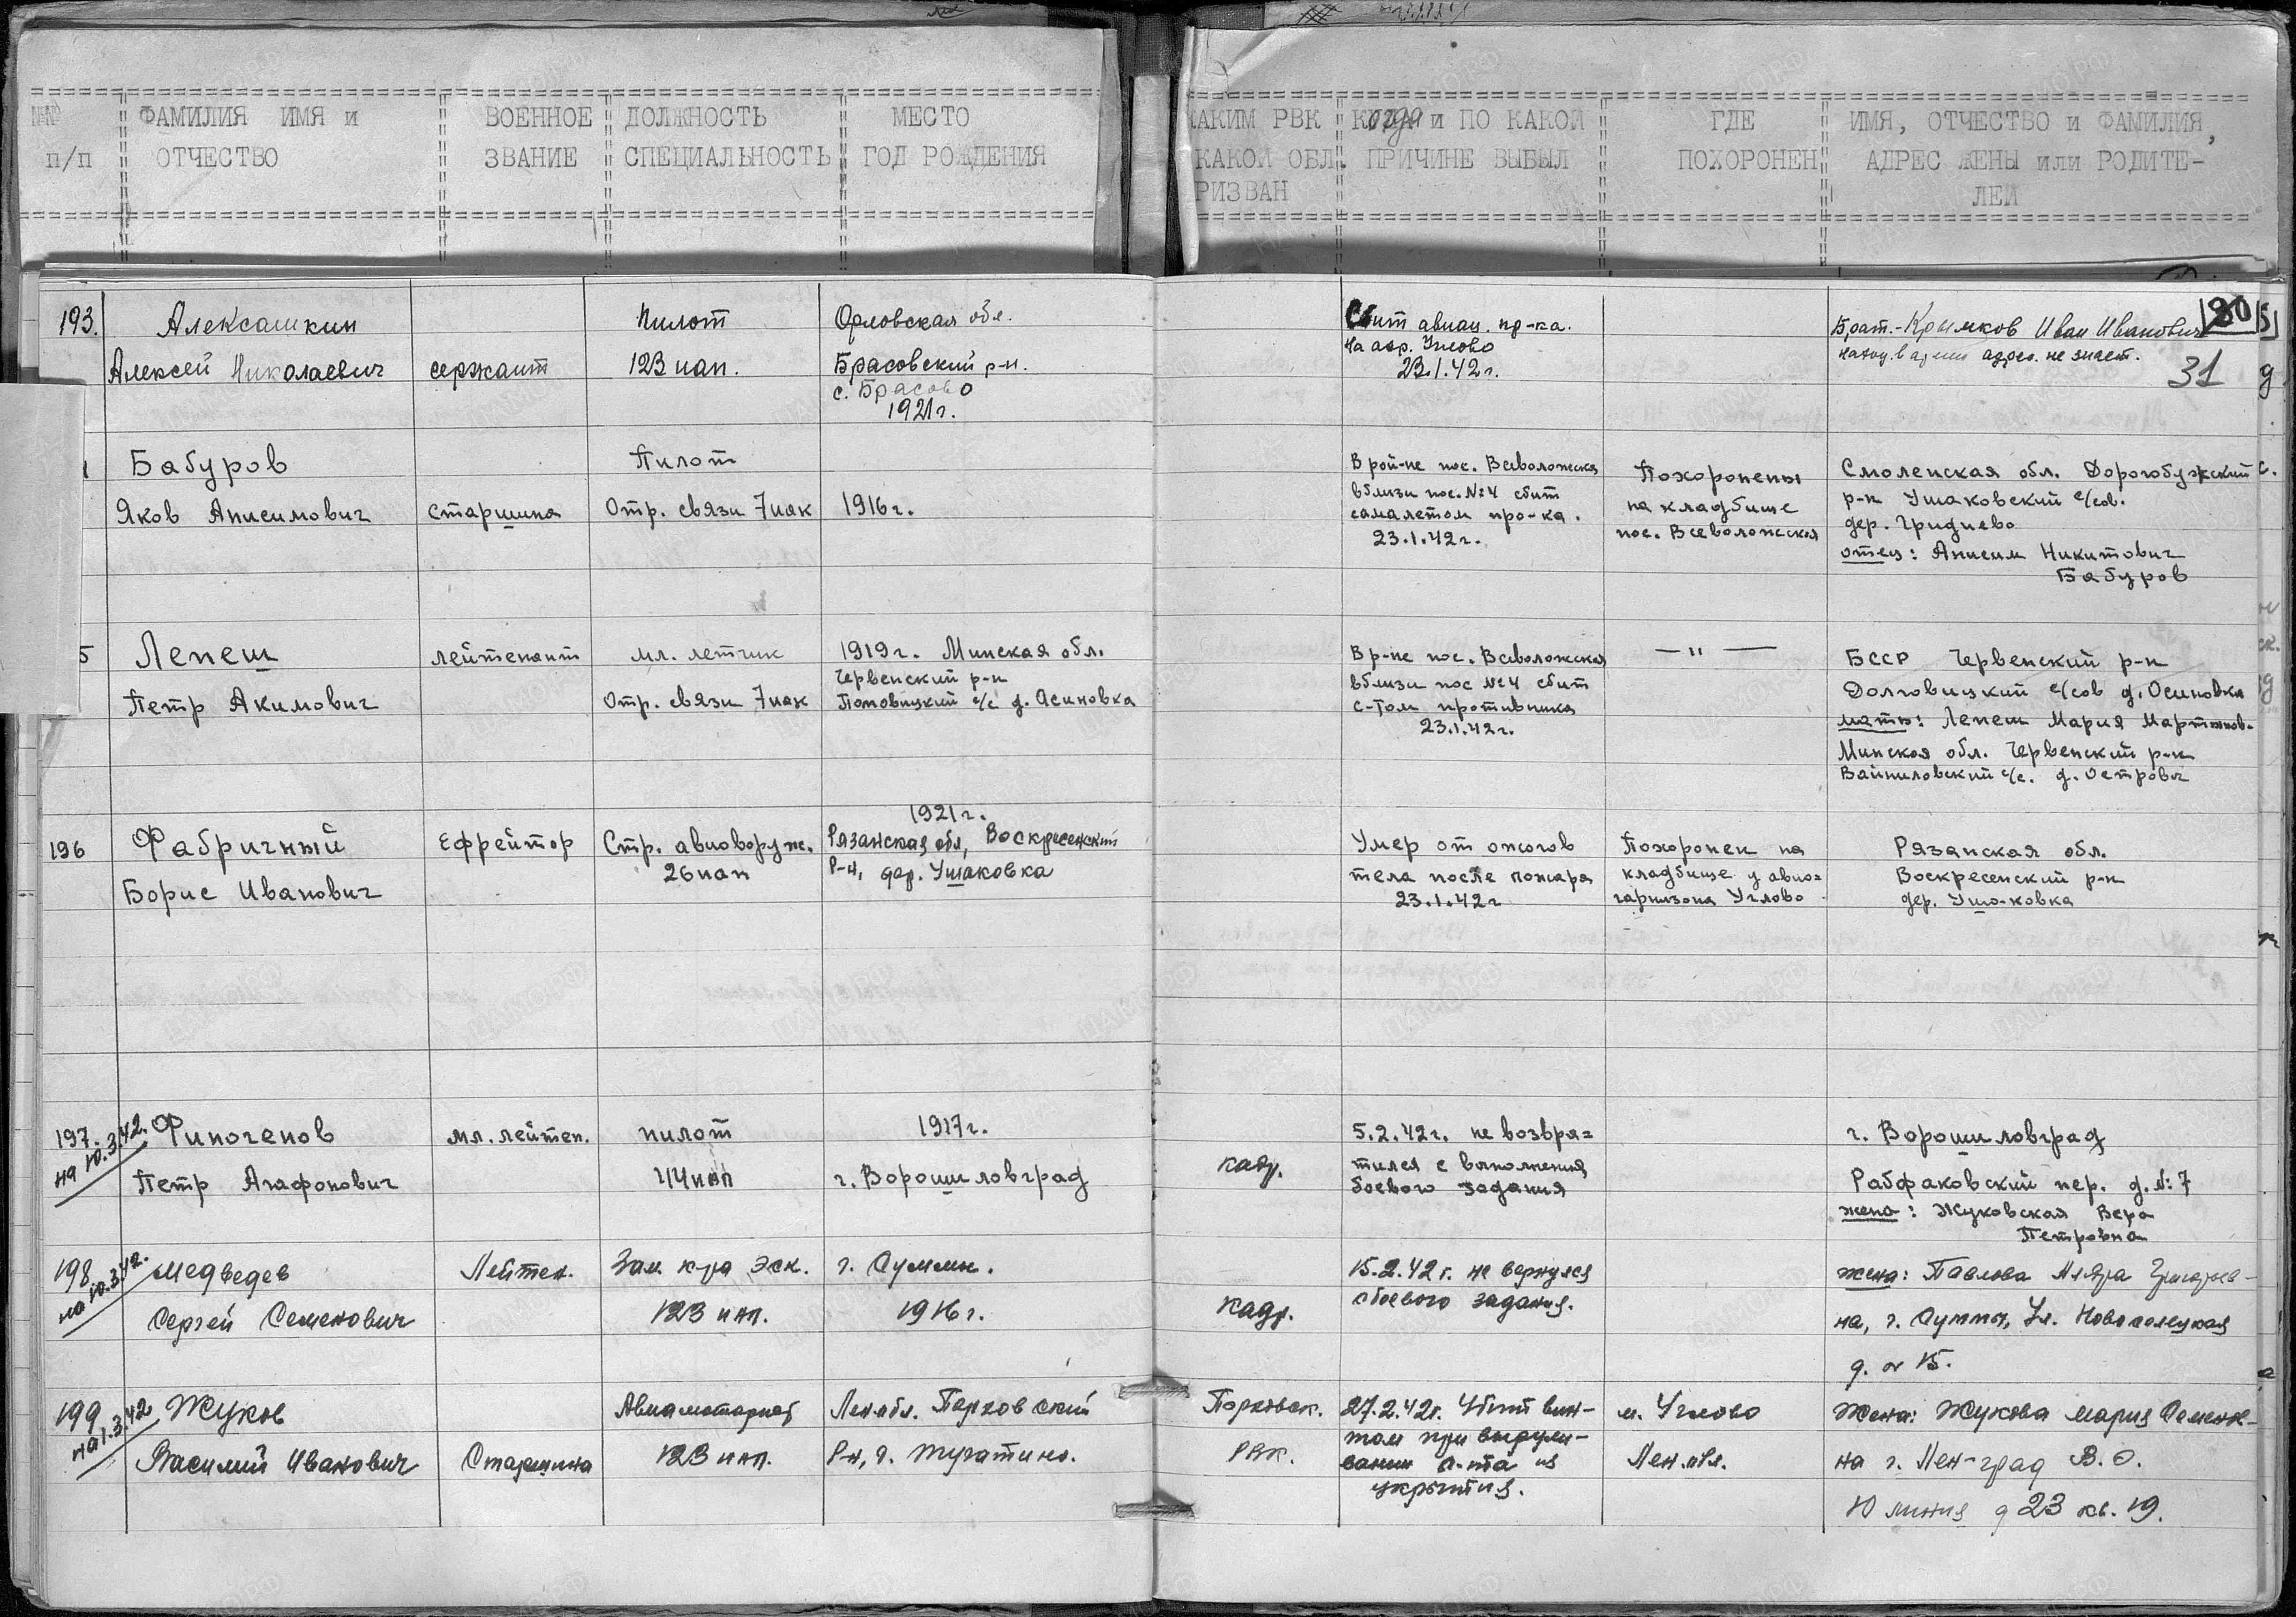 №№ п/п
ФАМИЛИЯ ИМЯ и ОТЧЕСТВО
ВОЕННОЕ ЗВАНИЕ
ДОЛЖНОСТЬ СПЕЦИАЛЬНОСТЬ
МЕСТО ГОД РОЖДЕНИЯ
КАКИМ РВК КАКОЙ ОБЛ. ПРИЗВАН
Когда и ПО КАКОЙ ПРИЧИНЕ ВЫБЫЛ
ГДЕ ПОХОРОНЕН
ИМЯ, ОТЧЕСТВО и ФАМИЛИЯ, АДРЕС ЖЕНЫ или РОДИТЕ-
ЛЕЙ
80
31
193.
Алексашкин
Алексей Николаевич
сержант
пилот
123 иап.
Орловская обл.
Брасовский р-н.
с. Брасово
1921 г.
Сбит авиац. пр-ка.
на аэр. Углово
23.1.42 г.
Брат.- Крымков Иван Иванович
наход. в армии адрес. не знает.
Бабуров
Яков Анисимович
старшина
Пилот
Отр. связи 7 иак
1916 г.
В рой-не пос. Всеволожская
вблизи пос. №4 сбит
самалетом про-ка.
23.1.42 г.
Похоронены
на кладбище
пос. Всеволожская
Смоленская обл. Дорогобужский
р-н Ушаковский с/сов.
дер. Гриднево
отец: Анисим Никитович
Бабуров
5
Лепеш
Петр Акимович
лейтенант
мл. летчик
Отр. связи 7 иак
1919 г. Минская обл.
Червенский р-н
Поповицкий с/с д. Осиновка
В р-не пос. Всеволожская
вблизи пос №4 сбит
с-том противника
23.1.42 г.
— " —
БССР Червенский р-н
Долговицкий с/сов д. Осиновка
мать: Лепеш Мария Мартынов.
Минская обл. Червенский р-н
Войниловский с/с. д. Островы
196
Фабричный
Борис Иванович
Ефрейтор
Стр. авиовооруж.
26 иап
1921 г.
Рязанская обл, Воскресенский
Р-н, дер. Ушаковка
Умер от ожогов
тела после пожара
23.1.42 г
Похоронен на
кладбище у авио=
гарнизона Углово
Рязанская обл.
Воскресенский р-н
дер. Ушаковка
197.
на 10.3.42.
Финогенов
Петр Агафонович
мл. лейтен.
пилот
44 иап
1917 г.
г. Ворошиловград
кадр.
5.2.42 г. не возвра=
тился с выполнения
боевого задания
г. Ворошиловград
Рабфаковский пер. д. №7
жена: Жуковская Вера
Петровна
198
на 10.3.42.
Медведев
Сергей Семенович
Лейтен.
Зам. к-ра эск.
123 иап.
г. Суммы.
1916 г.
кадр.
15.2.42 г. не вернулся
с боевого задания.
жена: Павлова
на, г. Суммы, Ул. Новоселецкая
д. № 15.
199
на 1.3.42
Жуков
Василий Иванович
Старшина
Авиамоторист
123 иап.
Лен. обл. Порховский
Р-н, д. Тугатино.
Порховск.
РВК.
27.2.42 г. Убит вин-
том при вырули-
вании с-та из
укрытия.
м. Углово
Лен. обл.
Жена: Жукова Мария Семенов-
на г. Лен-град В. О.
10 линия д 23 кв. 19.